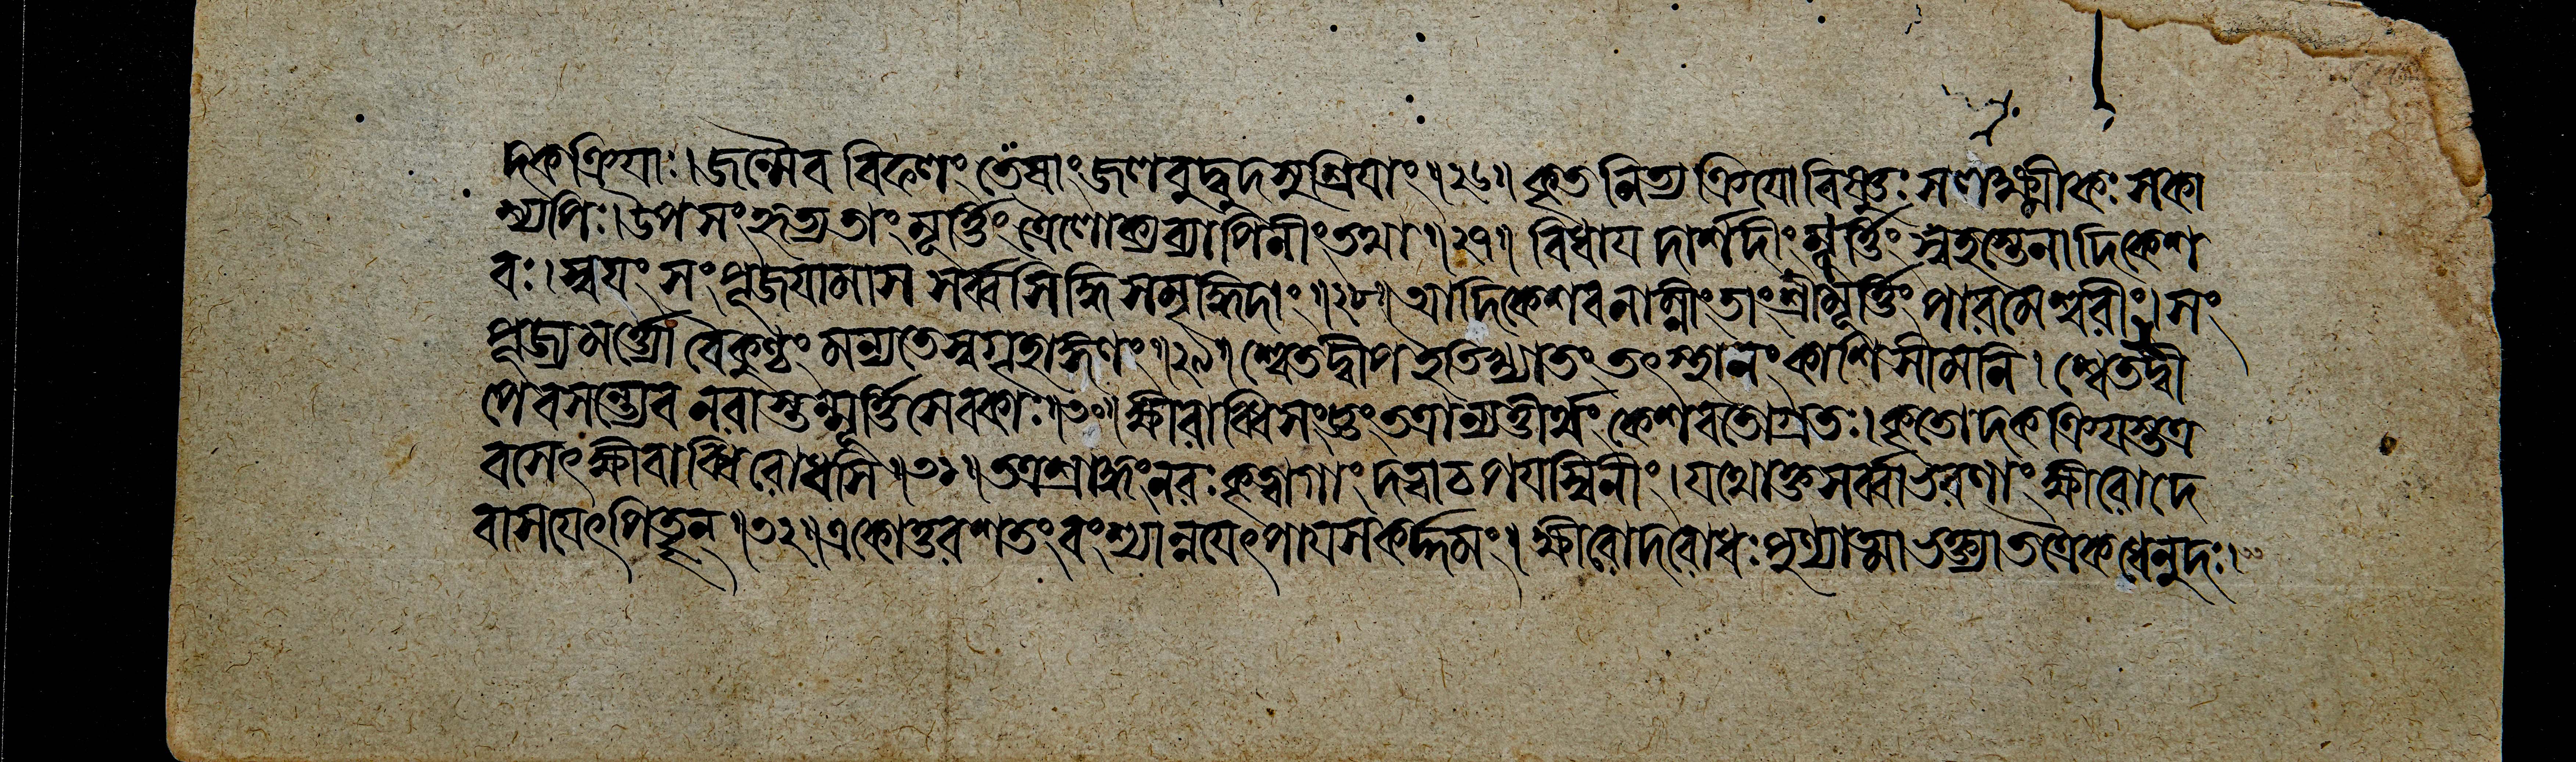 দকক্রিয়াঃ। জন্মৈব বিফলং তেষাং জলবুদ্বুদসুশ্রিয়াং॥২৬॥ কৃতনিত্যক্রিয়ো বিষ্ণুঃ সলক্ষ্মীকঃ সকা
শ্যপিঃ। উপসংহৃত্য তাং মূর্ত্তিং ত্রৈলোক্যব্যাপিনীং তথা॥২৭॥ বিধায় দার্শদীং মূর্ত্তিং স্বহস্তেনাদিকেশ
বঃ। স্বয়ং সংপূজয়ামাস সর্ব্বসিদ্ধিসমৃদ্ধিদাং॥২৮॥ আদিকেশবনাম্নীং তাং শ্রীমূর্ত্তিং পারমেশ্বরীং। সং
পূজ্য মর্ত্ত্যো বৈকুণ্ঠং মন্যতে স্বগৃহাঙ্গণং॥২৯॥ শ্বেতদ্বীপ ইতি খ্যাতং তৎস্থানং কাশিসীমনি। শ্বেতদ্বী
পে বসন্ত্যেব নরাস্তন্মূর্ত্তিসেবকাঃ॥৩০॥ ক্ষীরাব্ধিসংজ্ঞং তত্রান্যত্তীর্থং কেশবতোগ্রতঃ। কৃতোদকক্রিয়স্তত্র
বসেৎ ক্ষীরাব্ধিরোধসি॥৩১॥ তত্র শ্রাদ্ধং নরঃ কৃত্বা গাং দত্বা চ পয়স্বিনীং। যথোক্তসর্ব্বাভরণাং ক্ষীরোদে
বাসয়েৎ পিতৄন্॥৩২॥ একোত্তরশতং বংশ্যান্নয়েৎ পায়সকর্দ্দমং। ক্ষীরোদরোধঃ পুণ্যাত্মা ভক্ত্যা তত্রৈকধেনুদঃ। ৩৩